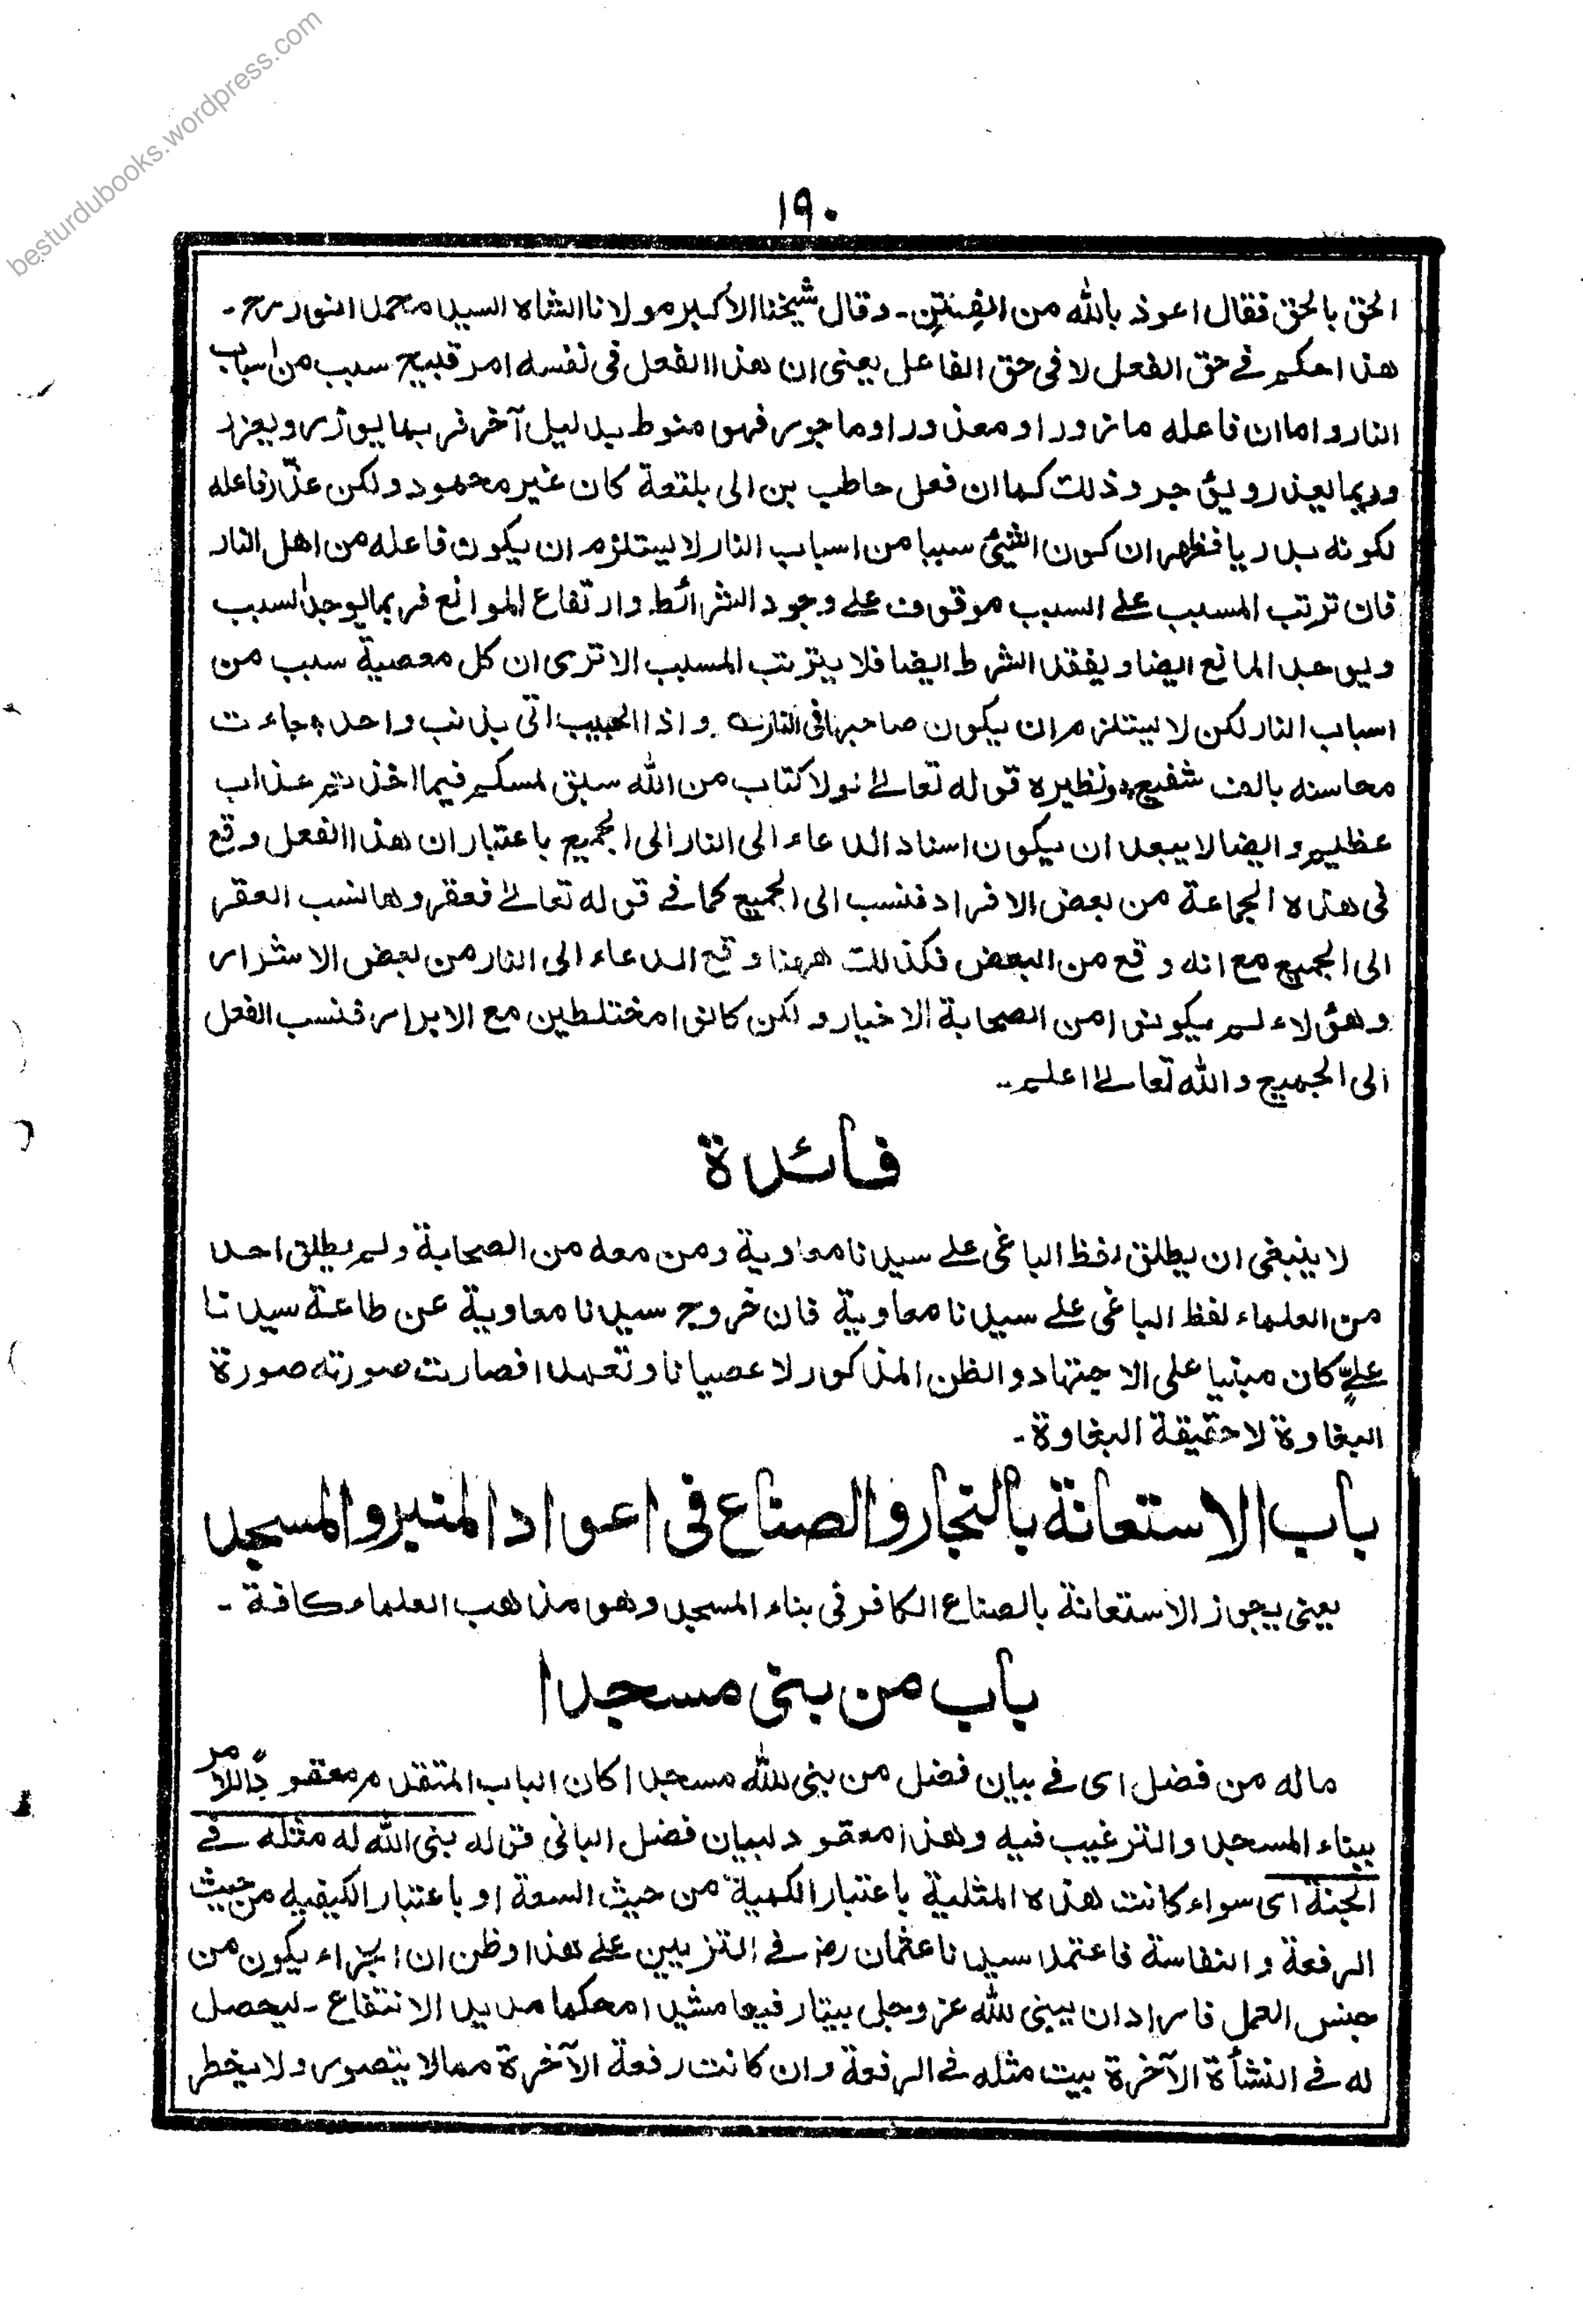 besturdubooks.wordpress.com
١٩٠
الحق بالحق فقال اعوذ بالله من الفتن۔ وقال شيخنا الاكبر مولانا الشاه السيد محمد انور رح۔
هذا حكم فے حق الفعل لا فى حق الفاعل يعنى ان هذا الفعل فى نفسه امر قبيح سبب من اسباب
النار واما ان فاعله مازور او معذور او ماجور فهو منوط بدليل آخر فربما يوزر ويعزر
وربما يعذر ويؤجر وذلك كما ان فعل حاطب بن ابى بلتعة كان غير محمود ولكن عذر فاعله
لكونه بدريا فظهر ان كون الشيئ سببا من اسباب النار لا يستلزم ان يكون فاعله من اهل النار
فان ترتب المسبب علے السبب موقوف علے وجود الشرائط وارتفاع الموانع فربما يوجد السبب
ويوجد المانع ايضا ويفقد الشرط ايضا فلا يترتب المسبب الا ترى ان كل معصية سبب من
اسباب النار لكن لا يستلزم ان يكون صاحبها فى النار ؎ واذا الحبيب اتى بذنب واحد ؞ جاءت
محاسنه بالف شفيع ؞ ونظيره قوله تعالے لولا كتاب من الله سبق لمسكم فيما اخذتم عذاب
عظيم وايضا لا يبعد ان يكون اسناد الدعاء الى النار الى الجميع باعتبار ان هذا الفعل وقع
فى هذه الجماعة من بعض الافراد فنسب الى الجميع كما فے قوله تعالے فعقروها نسب العقر
الى الجميع مع انه وقع من البعض فكذلك ههنا وقع الدعاء الى النار من بعض الاشرار
وهؤلاء لم يكونوا من الصحابة الاخيار ولكن كانوا مختلطين مع الابرار فنسب الفعل
الى الجميع والله تعالے اعلم۔
فائدة
لا ينبغى ان يطلق لفظ الباغى علے سيدنا معاوية ومن معه من الصحابة ولم يطلق احد
من العلماء لفظ الباغى علے سيدنا معاوية فان خروج سيدنا معاوية عن طاعة سيدنا
علےؓ كان مبنيا على الاجتهاد والظن المذكور لا عصيانا وتعمدا فصارت صورته صورة
البغاوة لا حقيقة البغاوة۔
باب الاستعانة بالنجار والصناع فى اعواد المنبر والمسجد
يعنى يجوز الاستعانة بالصناع الكافر فى بناء المسجد وهو مذهب العلماء كافة۔
باب من بنى مسجدا
ماله من فضل اى فے بيان فضل من بنى لله مسجدا كان الباب المتقدم معقودًا للامر
ببناء المسجد والترغيب فيه وهذا معقود لبيان فضل البانى قوله بنى الله له مثله فے
الجنة اى سواء كانت هذه المثلية باعتبار الكمية من حيث السعة او باعتبار الكيفيه من حيث
الرفعة والنفاسة فاعتمد سيدنا عثمان رض فے التزيين علے هذا وظن ان الجزاء يكون من
جنس العمل فاراد ان يبنى لله عز وجل بيتا رفيعا مشيدا محكما مديد الانتفاع۔ ليحصل
له فے النشأة الآخرة بيت مثله فے الرفعة وان كانت رفعة الآخرة مما لا يتصور ولا يخطر